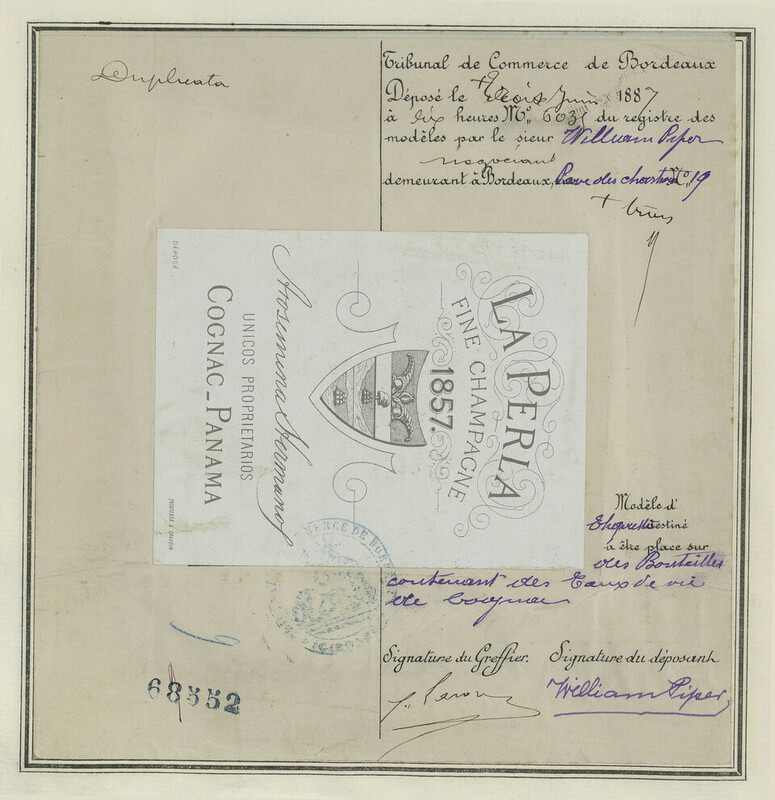 Duplicata
Tribunal de Commerce de Bordeaux
Déposé le Trois Juin 1887
à dix heures No. 6031 du registre des
modèles par le sieur William Piper
negociant
demeurant à Bordeaux, Pavé des chartrons No 19
DÉPOSÉ
LA PERLA
FINE CHAMPAGNE
1857.
Arosemena Hermanos
UNICOS PROPRIETARIOS
COGNAC_PANAMA
Modèle d'
Etiquette destiné
à être place sur
des Bouteilles
contenant des Eaux de vie
de Cognac
Signature du Greffier. Signature du déposant
William Piper
68552